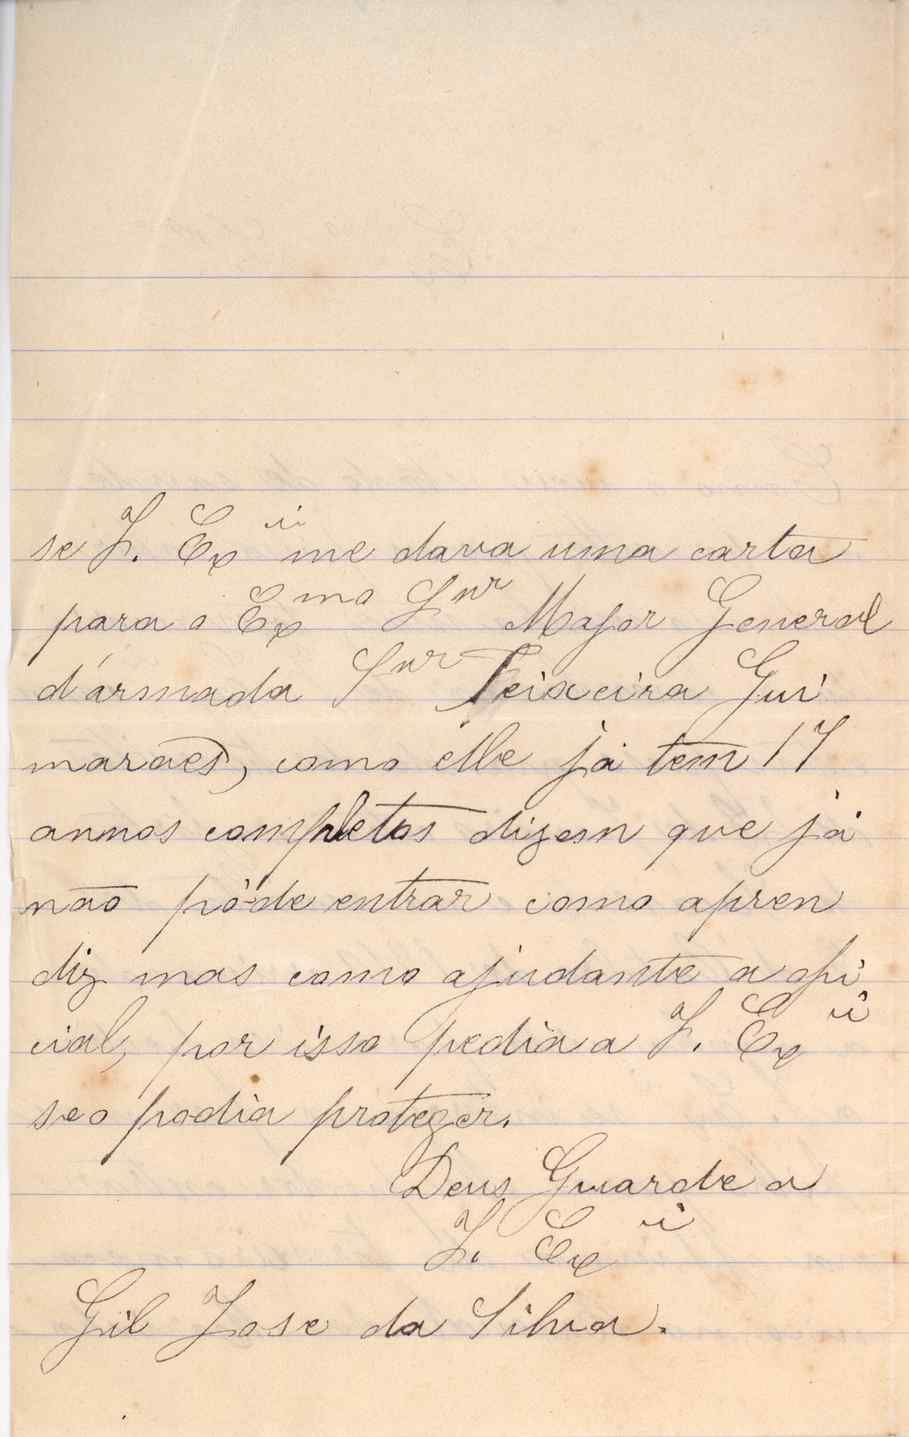 se V. Exª me dava uma carta
para o Exmo Snr Major General
d'armada Snr Teixeira Gui
marães, como elle já tem 17
annos completos dizem que já
não póde entrar como apren
diz mas como ajudante a ofi
cial, por isso pedia a V. Exª
se o podia proteger.
Deus Guarde a
V. Exª
Gil Jose da Silva.